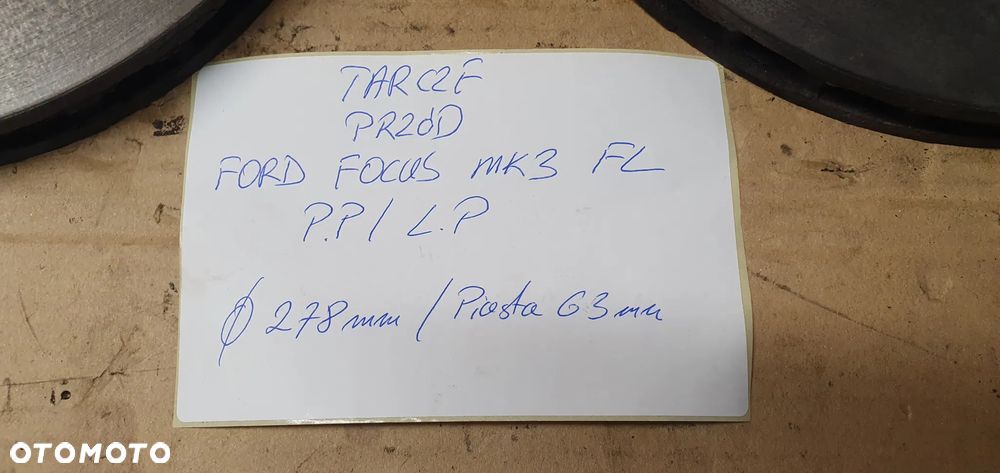 TARCZE
PRZÓD
FORD FOCUS MK3 FL
P.P / L.P
Ø 278mm / Piasta 63mm
OTOMOTO